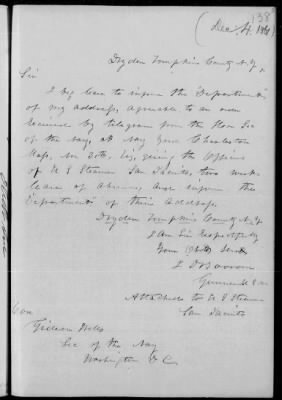 138
(Dec 4. 1861)
Dryden Tompkins County N.Y.
Sir
I beg leave to inform the Department
of my address, agreeable to an order
received by telegram from the Hon Sec
of the Navy, at Navy Yard Charleston
Mass, Nov 30th, 61, giving the Officers
of U S Steamer San Jacinto, two weeks
leave of absence, and inform the
Department of their address
Dryden Tompkins County N.Y.
I Am Sir Respectfully
Your Obdt Servt
Gunner U.S.N.
Attached to U S Steamer
San Jacinto
Hon
Gideon Welles
Sec of the Navy
Washington D.C.